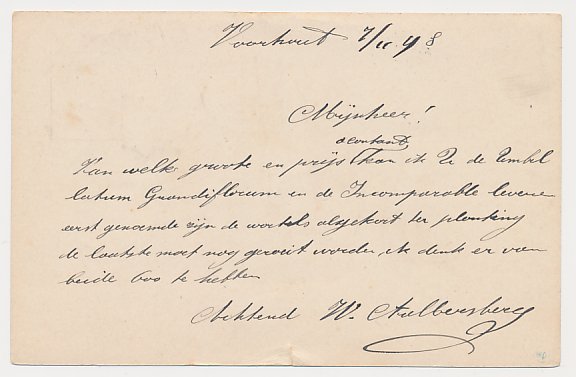 Voorhout 7/11 98
Mijnheer!
a contant
Van welke groote en prijs kan ik U de Umbil
latum Grandiflorum en de Incomparable leveren
eerst genoemde zijn de wortels afgekort ter planting
de laatste moet nog gerooit worden, ik denk er van
beide 600 te hebben
Achtend W. Aelbersberg